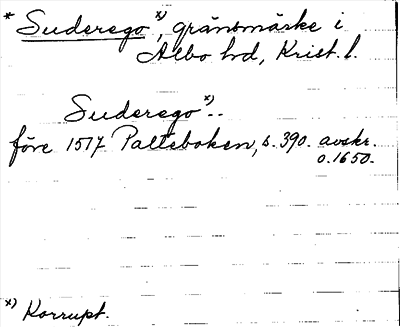 * Suderego x), gränsmärke i
Albo hd, Krist. l.
Suderego x)..
före 1517 Palteboken, s. 390. avskr.
o. 1650.
x) Korrupt.